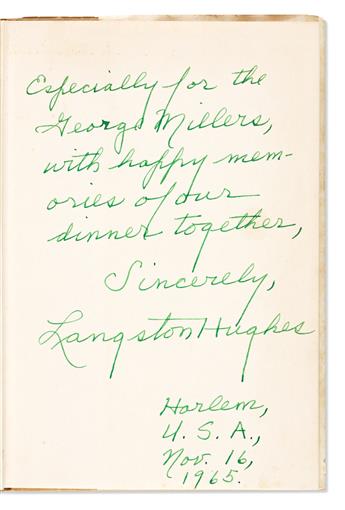 Especially for the
George Millers,
with happy mem-
ories of our
dinner together,
Sincerely,
Langston Hughes
Harlem,
U. S. A.,
Nov. 16,
1965.